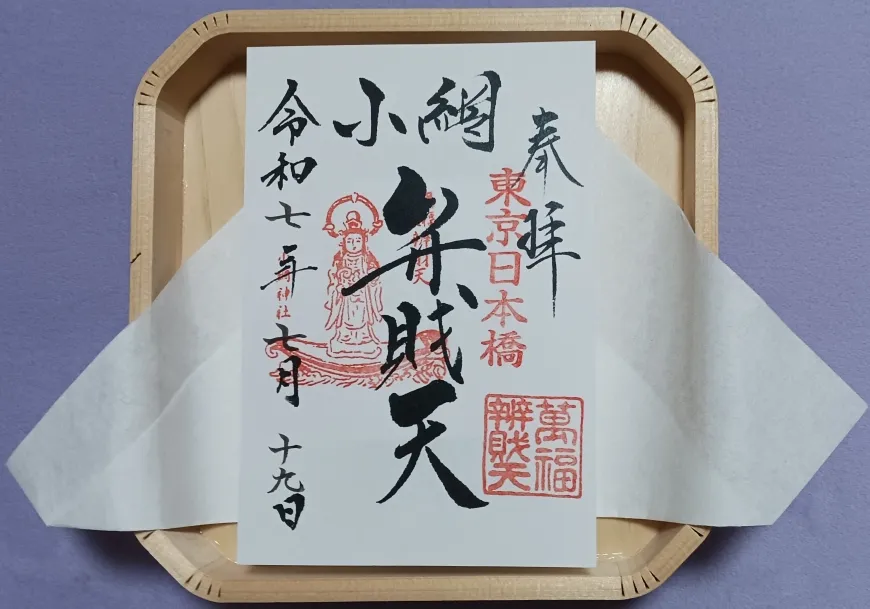 奉拝
東京日本橋
萬福
辨財天
小網
弁財天
神社
令和七年七月十九日